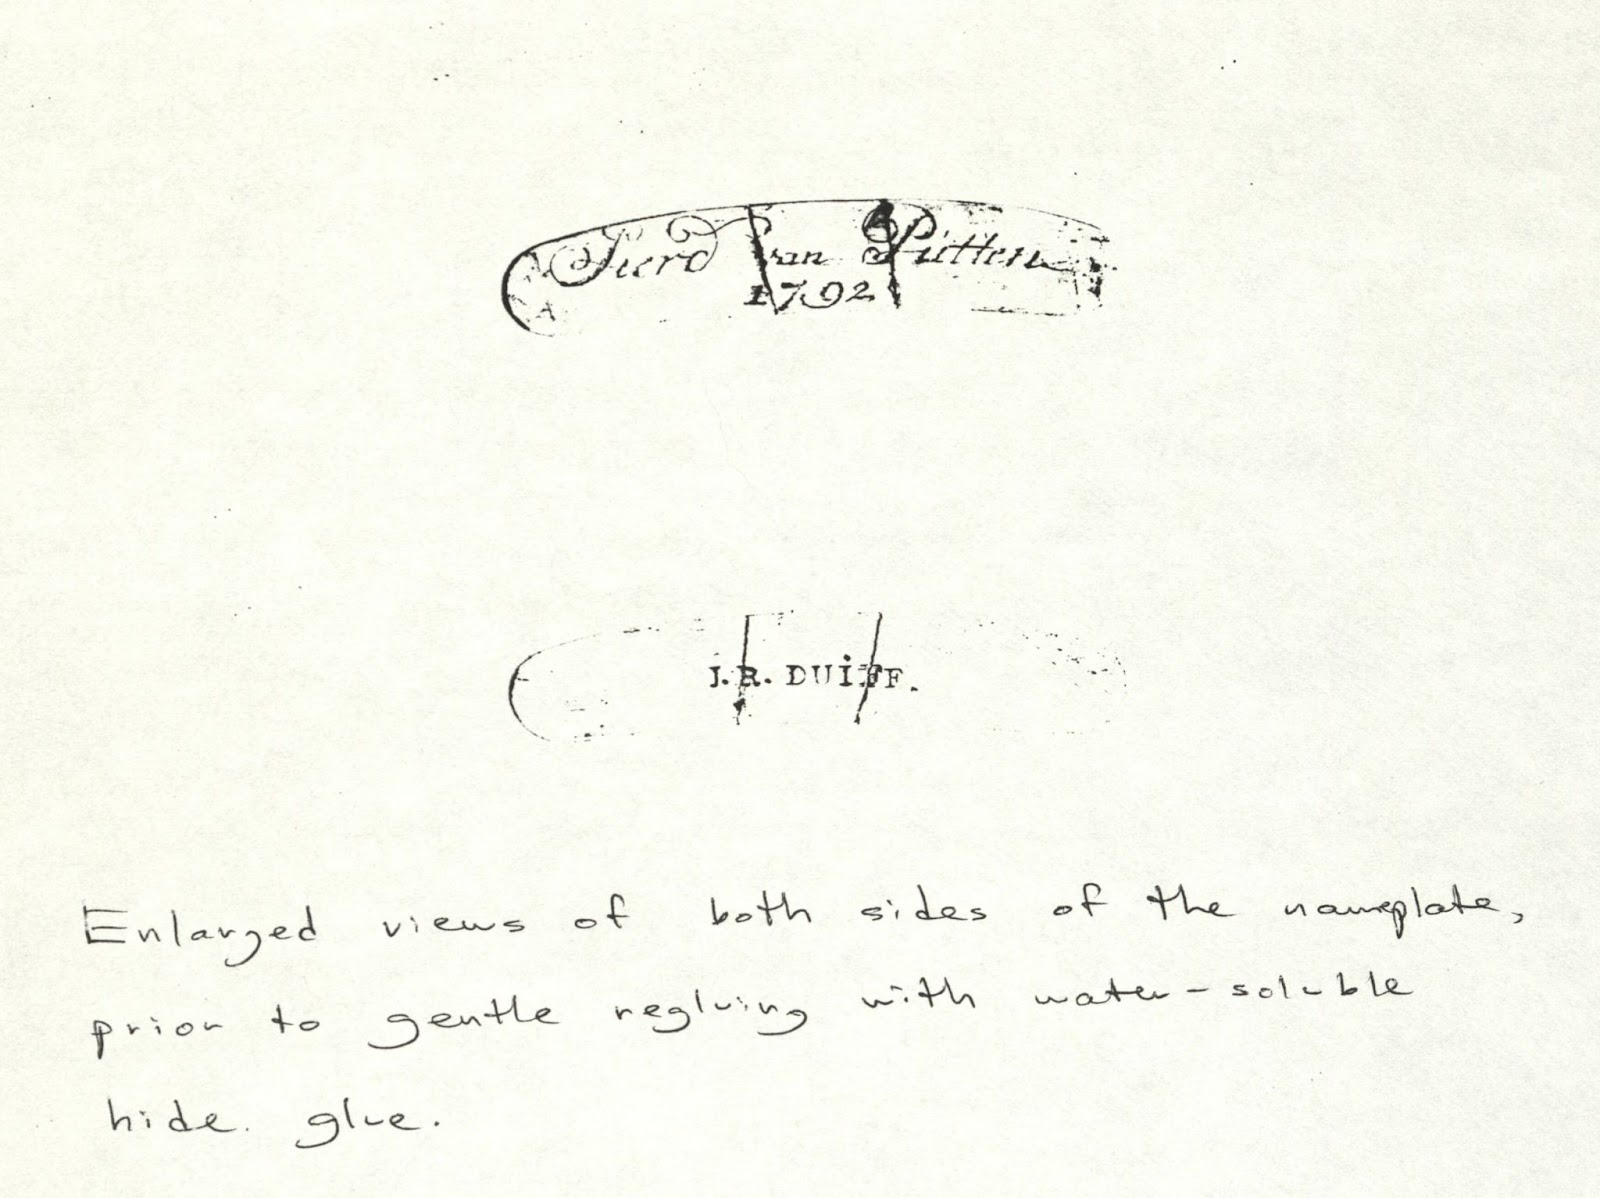 Sierd van Pütten
1792
J. R. DUiFF.
Enlarged views of both sides of the nameplate,
prior to gentle regluing with water-soluble
hide glue.